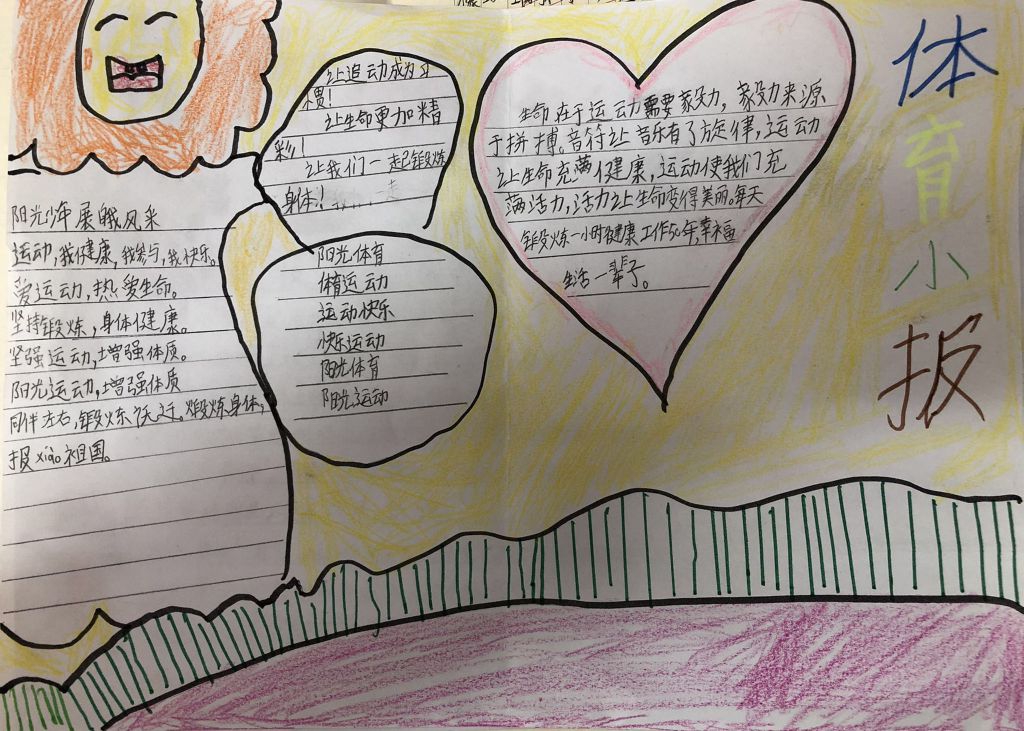 体育小报
生命在于运动需要毅力,毅力来源
于拼搏。音符让音乐有了旋律,运动
让生命充满健康,运动使我们充
满活力,活力让生命变得美丽。每天
锻炼一小时健康工作50年,幸福
生活一辈子。
让追动成为习
惯!
让生命更加精
彩!
让我们一起锻炼
身体!
阳光体育
体育运动
运动快乐
快乐运动
阳光体育
阳光运动
阳光少年展峨风采
运动,我健康,我参与,我快乐。
爱运动,热爱生命。
坚持锻炼,身体健康。
坚强运动,增强体质。
阳光运动,增强体质
同伴左右,锻炼东 煅炼身体,
报xiào祖国。